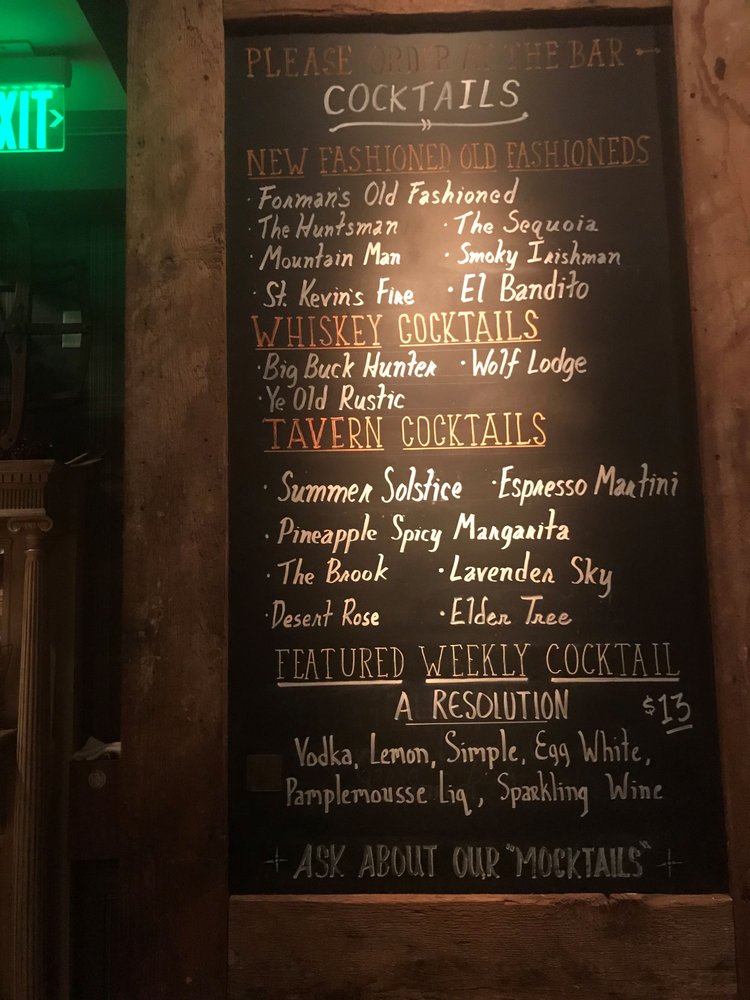 EXIT >
PLEASE ORDER AT THE BAR →
COCKTAILS
NEW FASHIONED OLD FASHIONEDS
· Forman's Old Fashioned
· The Huntsman · The Sequoia
· Mountain Man · Smoky Irishman
· St. Kevin's Fire · El Bandito
WHISKEY COCKTAILS
· Big Buck Hunter · Wolf Lodge
· Ye Old Rustic
TAVERN COCKTAILS
· Summer Solstice · Espresso Martini
· Pineapple Spicy Margarita
· The Brook · Lavender Sky
· Desert Rose · Elder Tree
FEATURED WEEKLY COCKTAIL
A RESOLUTION $13
Vodka, Lemon, Simple, Egg White,
Pamplemousse Liq, Sparkling Wine
+ ASK ABOUT OUR "MOCKTAILS" +